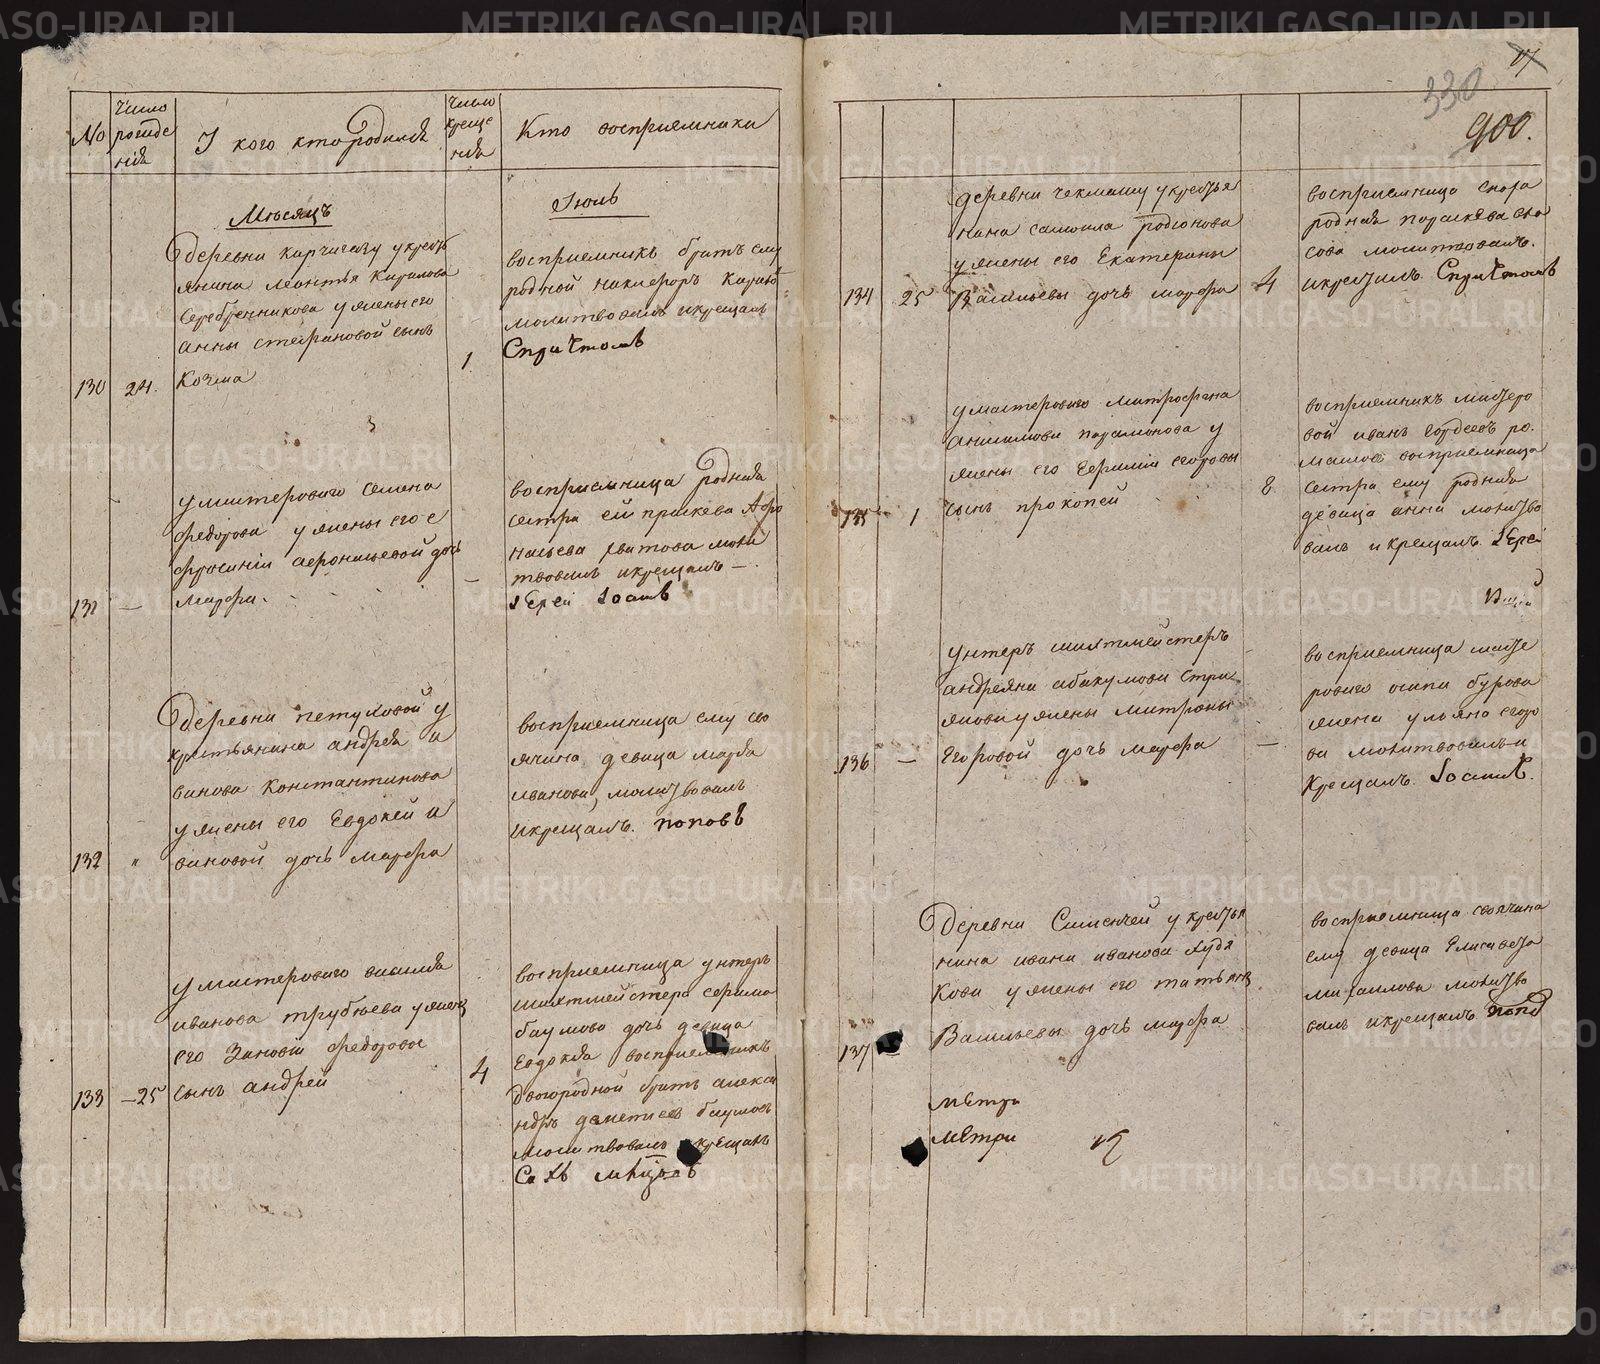 METRIKI.GASO-URAL.RU
№
Число рожде нія
У кого кто родился
Число креще нія
Кто восприемники
Месяцъ
Іюль
деревни карчигазу укресть
янина леонтья Кирилова
Серебренникова уженыего
анны стефановой сынъ
130 24. Козма
восприемникъ братъ ему
родной никифоръ Кирило
молитвовалъ икрещалъ
1
умастероваго семена
федорова уженыего е
фросиніи афонасьевой дочь
131 — марфа.
восприемница родная
сестра ей праскева Афо
насьева хватова моли
твовалъ икрещалъ —
Іерей Іоаннъ
деревни петуховой у
крестьянина андрея и
ванова константинова
ужены его Евдокеи и
132 " вановой дочь марфа
восприемница ему сво
ячина девица марфа
иванова, молитвовалъ
икрещалъ. поповъ
умастероваго василья
иванова трубеева ужены
его Зановіи федоровое
133 —25 сынъ андрей
4
восприемница унтеръ
шихтмейстера
баумово дочь девица
Евдокея восприемникъ
Двогородной братъ алекса
ндръ дементиевъ баумовъ
молитвовалъ икрещалъ
330
900.
деревни чекмашу укрестья
нина самоила родионова
ужены его Екатерины
134 25 Васильевы дочь марфа
4
восприемница снора
родная параскева
молитвовалъ.
икрестилъ.
умастероваго митрофана
анисимова парамонова у
жены его Ефиміи егоровы
135 1 сынъ прокопей
8
восприемникъ мастеро
вой иванъ гордеевъ ро.
машовъ восприемница
сестра ему родная
девица анна молитво
валъ и крещалъ. Іерей
унтеръ шихтмейстеръ
андреяна абакумова стри
жова ужены матроны
136 — Егоровой дочь марфа
—
восприемница масте
роваго осипа бурова
жена ульяна егоро
ва молитвовалъи
Крещалъ. Іоаннъ.
Деревни Сисенчей укрестья
нина ивана иванова худя
кова ужены его татьяны
137 — Васильевы дочь марфа
восприемница своячина
ему девица Елисавета
михаилова молитво
валъ икрещалъ попо
метри
метри